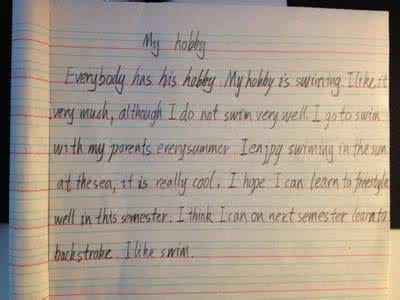 My hobby
Everybody has his hobby. My hobby is swiming. I like it
very much, although I do not swim very well. I go to swim
with my parents every summer. I enjoy swiming in the sun
at the sea, it is really cool. I hope I can learn to freestyle
well in this semester. I think I can on next semester learn to
backstroke. I like swim.